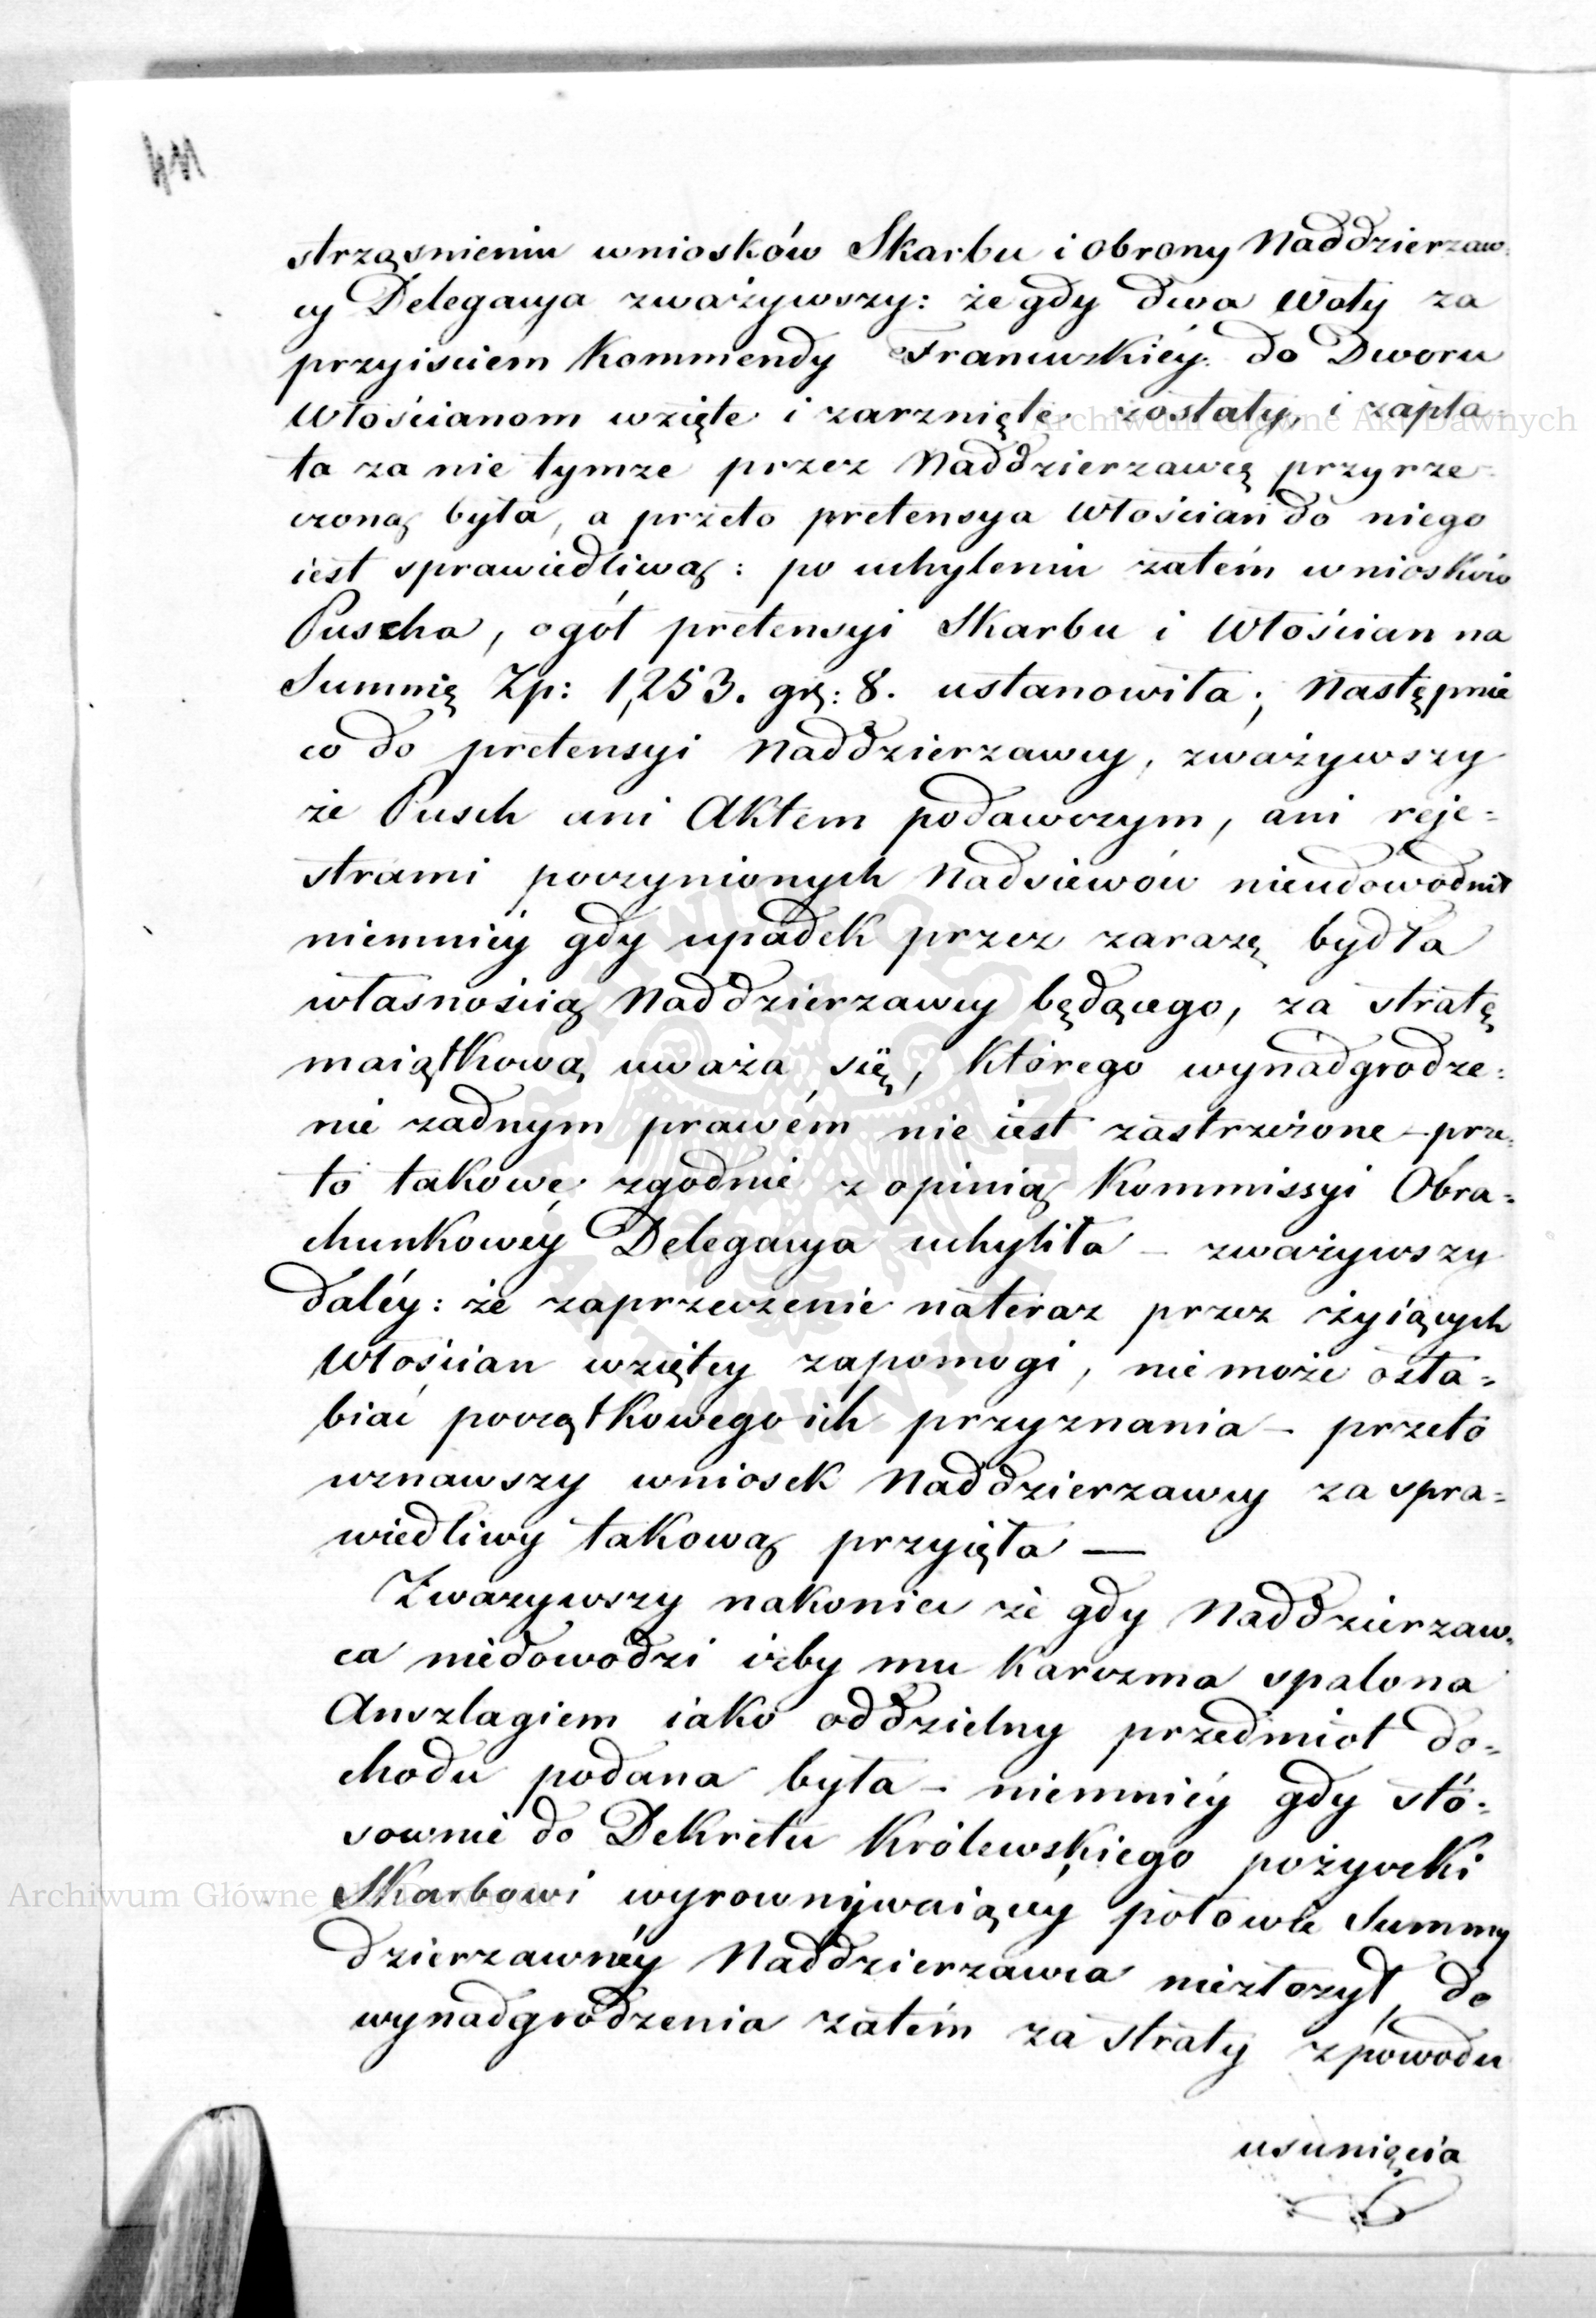 strząsnieniu wniosków Skarbu i obrony Naddzierzaw-
cy Delegacya zważywszy: że gdy dwa Woły za
przyiściem Kommendy Francuzkiéy do Dworu
Włościanom wzięte i zarznięte zostały, i zapła-
ta za nie tymże przez Naddzierzawcę przyrze-
czoną była, a przeto pretensya Włościan do niego
iest sprawiedliwą: po uchyleniu zatém wniosków
Puscha, ogół pretensyi Skarbu i Włościan na
Summę Zp: 1,253. gr: 8. ustanowiła; Następnie
co do pretensyi Naddzierzawcy, zważywszy
że Pusch ani Aktem podawczym, ani reje=
strami poczynionych Nadsiewów nieudowodnił
niemniéy gdy upadek przez zarazę bydła
własnością Naddzierzawcy będącego, za stratę
maiątkową uważa się, którego wynadgrodze=
nie żadnym prawém nie iest zastrzeżone – prze=
to takowe zgodnie z opinią Kommissyi Obra=
chunkowéy Delegacya uchyliła – zważywszy
daléy: że zaprzeczenie nateraz przez żyiących
Włościan wziętéy zapomogi, nie może osła=
biać początkowego ich przyznania – przeto
uznawszy wniosek Naddzierzawcy za spra=
wiedliwy takową przyięła —
Zważywszy nakoniec że gdy Naddzierzaw=
ca niedowodzi iżby mu karczma spalona
Anszlagiem iako oddzielny przedmiot do=
chodu podana była – niemniéy gdy stó=
sownie do Dekretu Królewskiego pożyczki
Skarbowi wyrownywaiącéy połowie Summy
dzierzawnéy Naddzierzawca niezłożył, do
wynadgrodzenia zatém za straty zpowodu
usunięcia
Archiwum Główne Akt Dawnych
Archiwum Główne Akt Dawnych